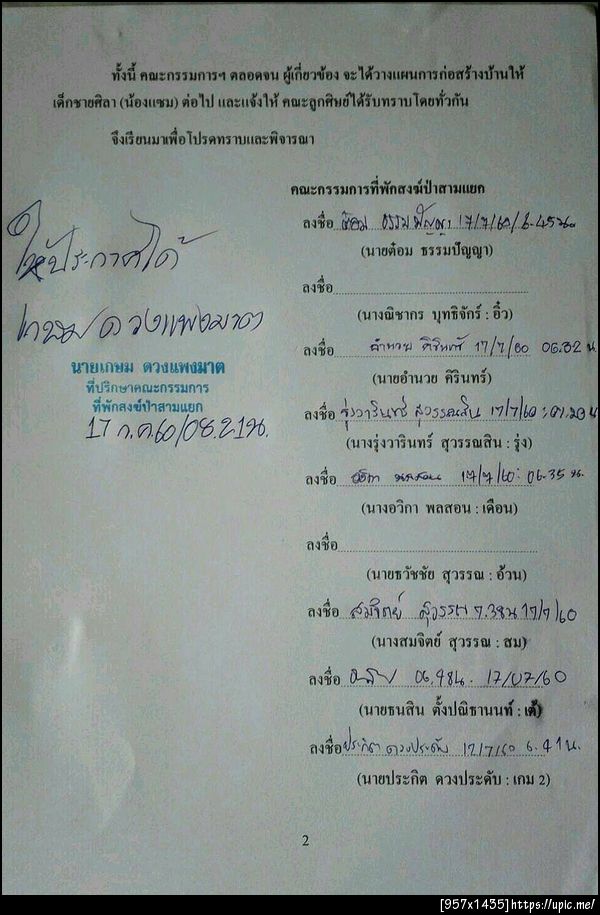 ทั้งนี้ คณะกรรมการฯ ตลอดจน ผู้เกี่ยวข้อง จะได้วางแผนการก่อสร้างบ้านให้
เด็กชายศิลา (น้องแซม) ต่อไป และแจ้งให้ คณะลูกศิษย์ได้รับทราบโดยทั่วกัน
จึงเรียนมาเพื่อโปรดทราบและพิจารณา
คณะกรรมการที่พักสงฆ์ป่าสามแยก
ลงชื่อ ต๋อม ธรรมปัญญา 17/7/60/6.45น.
(นายต๋อม ธรรมปัญญา)
ลงชื่อ
(นางณิชากร บุทธิจักร์ : อิ๋ว)
ลงชื่อ อำนวย คิรินทร์ 17/7/60 06.32 น.
(นายอำนวย คิรินทร์)
ลงชื่อ รุ่งวารินทร์ สุวรรณสิน 17/7/60
(นางรุ่งวารินทร์ สุวรรณสิน : รุ่ง)
ลงชื่อ อวิกา พลสอน 17/7/60: 06.35 น.
(นางอวิกา พลสอน : เดือน)
ลงชื่อ
(นายธวัชชัย สุวรรณ : อ้วน)
ลงชื่อ สมจิตย์ สุวรรณ 7.38น 17/7/60
(นางสมจิตย์ สุวรรณ : สม)
ลงชื่อ 17/07/60
(นายธนสิน ตั้งปณิธานนท์ : เต้)
ลงชื่อ ประกิต ดวงประดับ 17/7/60 6.41น.
(นายประกิต ดวงประดับ : เกม 2)
ให้ประกาศได้
เกษม ดวงแพงมาต
นายเกษม ดวงแพงมาต
ที่ปรึกษาคณะกรรมการ
ที่พักสงฆ์ป่าสามแยก
17 ก.ค.60/08.21น.
2
[957x1435]https://upic.me/